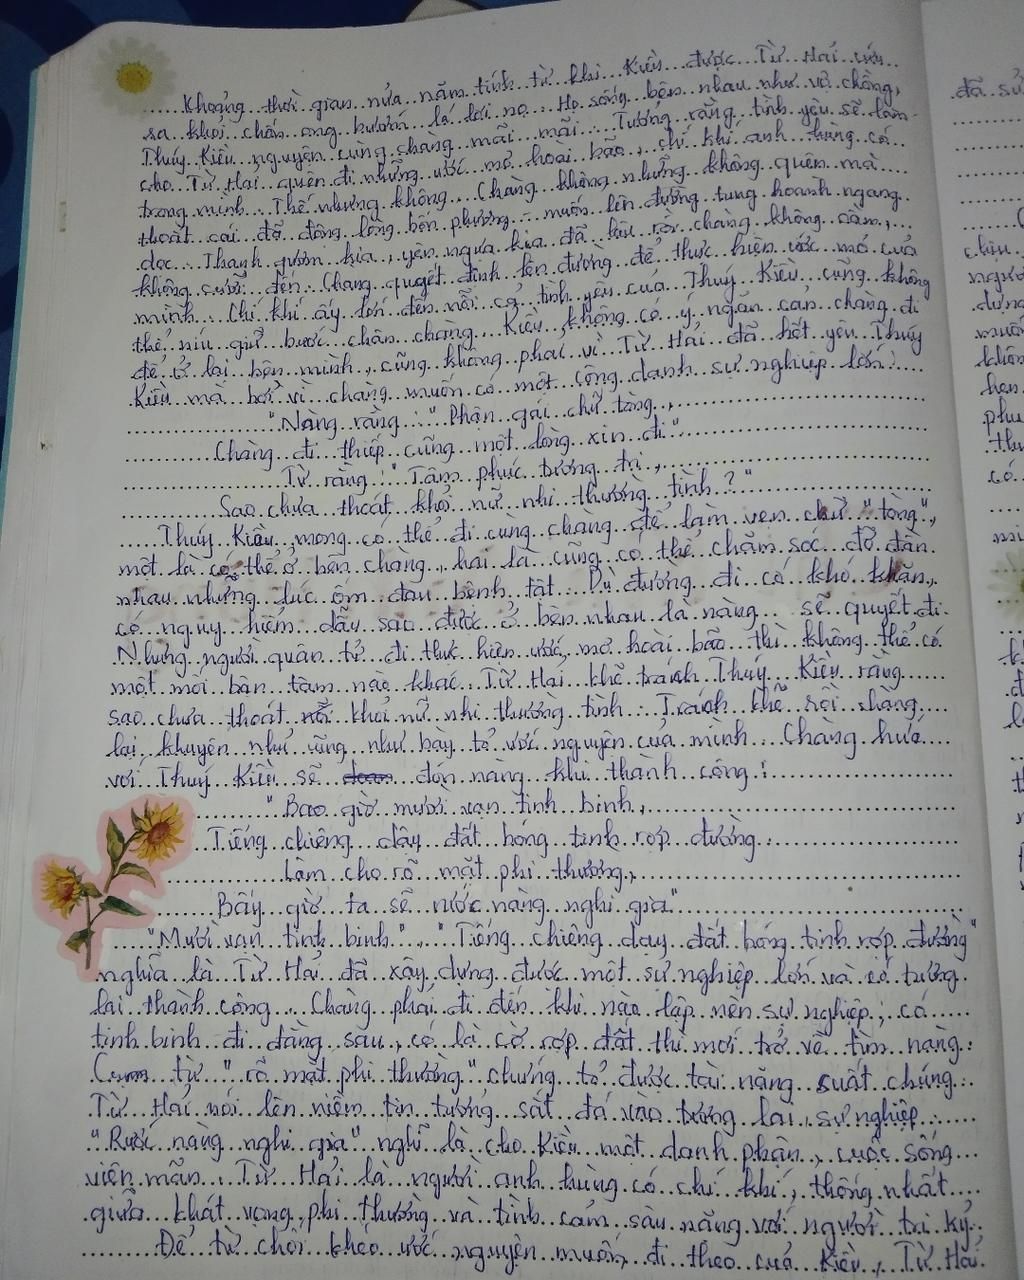 Khoảng thời gian nửa năm tính từ khi Kiều được Từ Hải cứu
ra khỏi chốn ong bướm lả lơi nọ. Họ sống bên nhau như vợ chồng,
Thúy Kiều nguyện cùng chàng mãi mãi. Tưởng rằng, tình yêu sẽ làm
cho Từ Hải quên đi những ước mơ hoài bão, chí khí anh hùng có
trong mình. Thế nhưng không. Chàng không những không quên mà
thoắt cái đã động lòng bốn phương muốn lên đường tung hoành ngang
dọc. Thanh gươm kia, yên ngựa kia đã lâu rồi chàng không cầm,
không cưỡi đến. Chàng quyết định lên đường để thực hiện ước mơ của
mình. Chí khí ấy lớn đến nỗi cả tình yêu của Thuý Kiều cũng không
thể níu giữ bước chân chàng. Kiều không có ý ngăn cản chàng đi
để ở lại bên mình, cũng không phải vì Từ Hải đã hết yêu Thúy
Kiều mà bởi vì chàng muốn có một công danh sự nghiệp lớn:
"Nàng rằng: "Phận gái chữ tòng,
Chàng đi thiếp cũng một lòng xin đi".
Từ rằng: "Tâm phục tương tri,
Sao chưa thoát khỏi nữ nhi thường tình?"
Thuý Kiều mong có thể đi cùng chàng để làm vẹn chữ "tòng",
một là có thể ở bên chàng, hai là cũng có thể chăm sóc đỡ đần
nhau những lúc ốm đau bệnh tật. Dù đường đi có khó khăn,
có nguy hiểm dẫu sao được ở bên nhau là nàng sẽ quyết đi.
Nhưng người quân tử đi thực hiện ước mơ hoài bão thì không thể có
một mối bận tâm nào khác. Từ Hải khẽ trách Thuý Kiều rằng
sao chưa thoát khỏi nữ nhi thường tình. Trách khẽ rồi chàng
lại khuyên nhủ cũng như bày tỏ ước nguyện của mình. Chàng hứa
với Thuý Kiều sẽ đón nàng khi thành công:
"Bao giờ mười vạn tinh binh,
Tiếng chiêng dậy đất bóng tinh rợp đường.
Làm cho rõ mặt phi thường,
Bấy giờ ta sẽ rước nàng nghi gia"
"Mười vạn tinh binh", "Tiếng chiêng dạy đất bóng tinh rợp đường"
nghĩa là Từ Hải đã xây dựng được một sự nghiệp lớn và có tương
lai thành công. Chàng phải đi đến khi nào lập nên sự nghiệp, có
tinh binh đi đằng sau, có lá cờ rợp đất thì mới trở về tìm nàng.
Cụm từ "rõ mặt phi thường" chứng tỏ được tài năng xuất chúng.
Từ Hải nói lên niềm tin tưởng sắt đá vào tương lai, sự nghiệp.
"Rước nàng nghi gia" nghĩ là cho Kiều một danh phận, cuộc sống
viên mãn. Từ Hải là người anh hùng có chí khí, thống nhất
giữa khát vọng phi thường và tình cảm sâu nặng với người tri kỷ.
Để từ chối khéo ước nguyện muốn đi theo của Kiều, Từ Hải